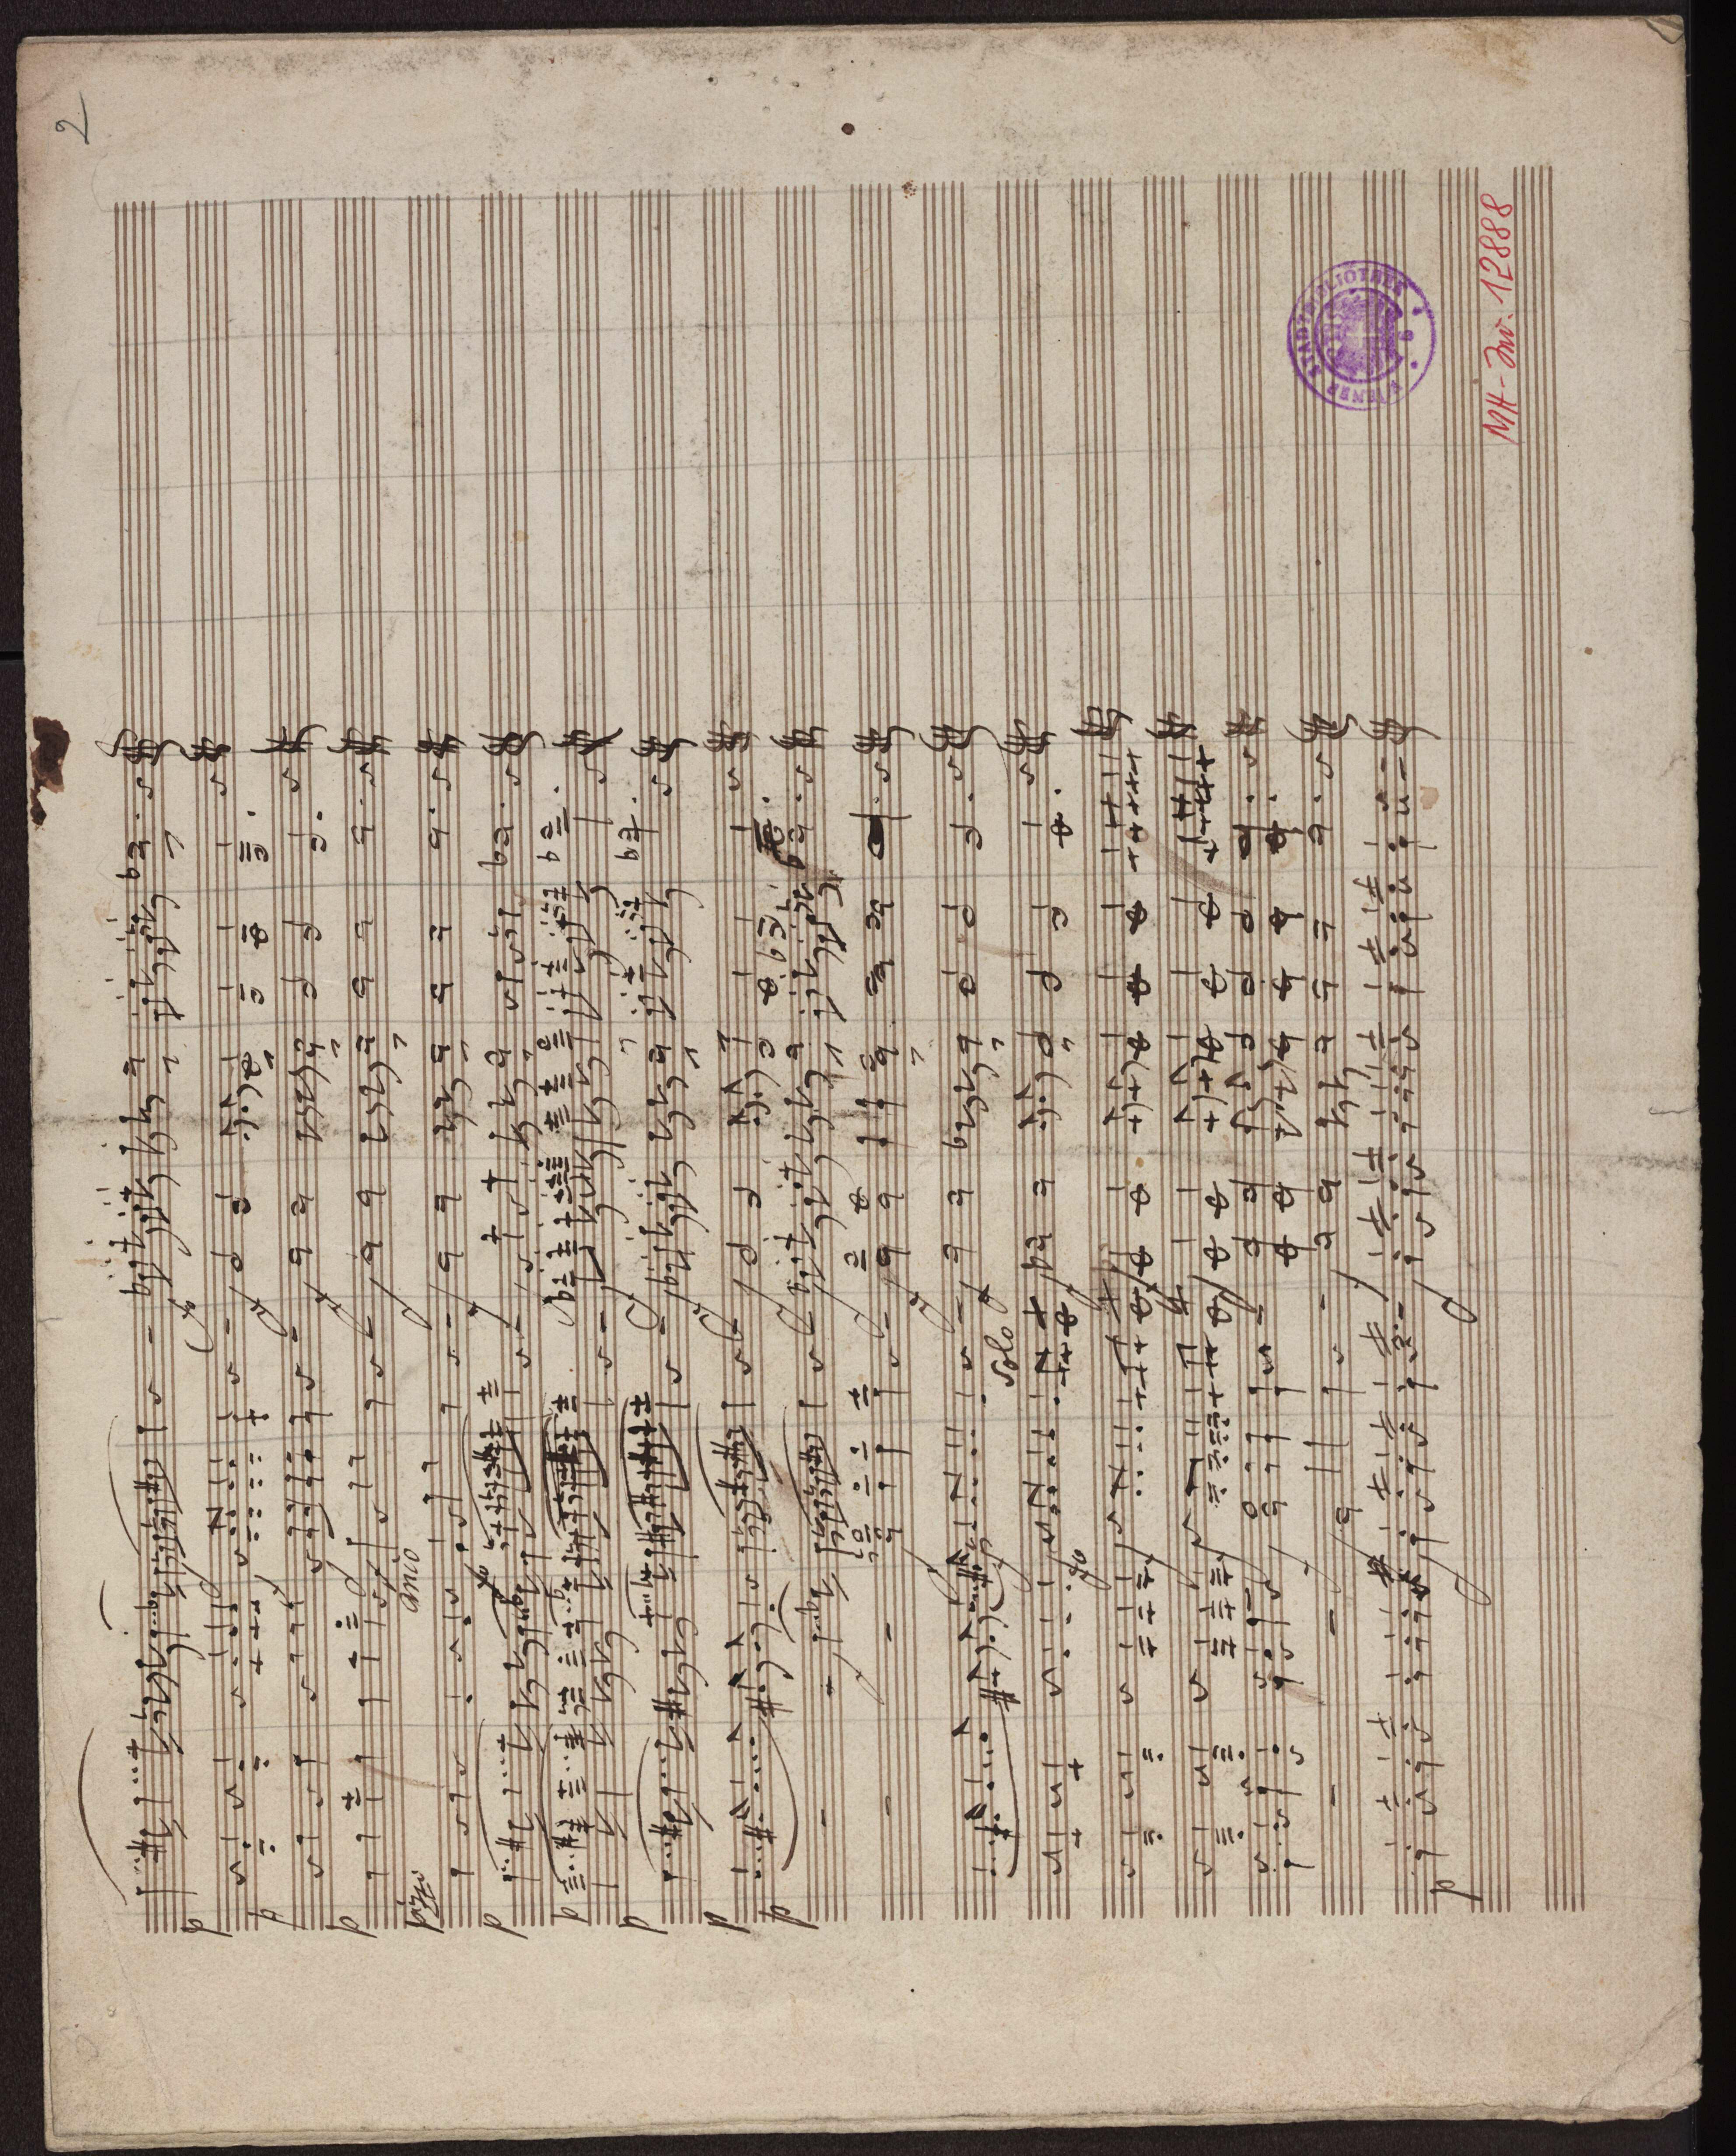 2
MH-Inv. 12888
WIENER STADTBIBLIOTHEK
p
p
p
pizz
arco
p
p
p
p
p
Solo
p